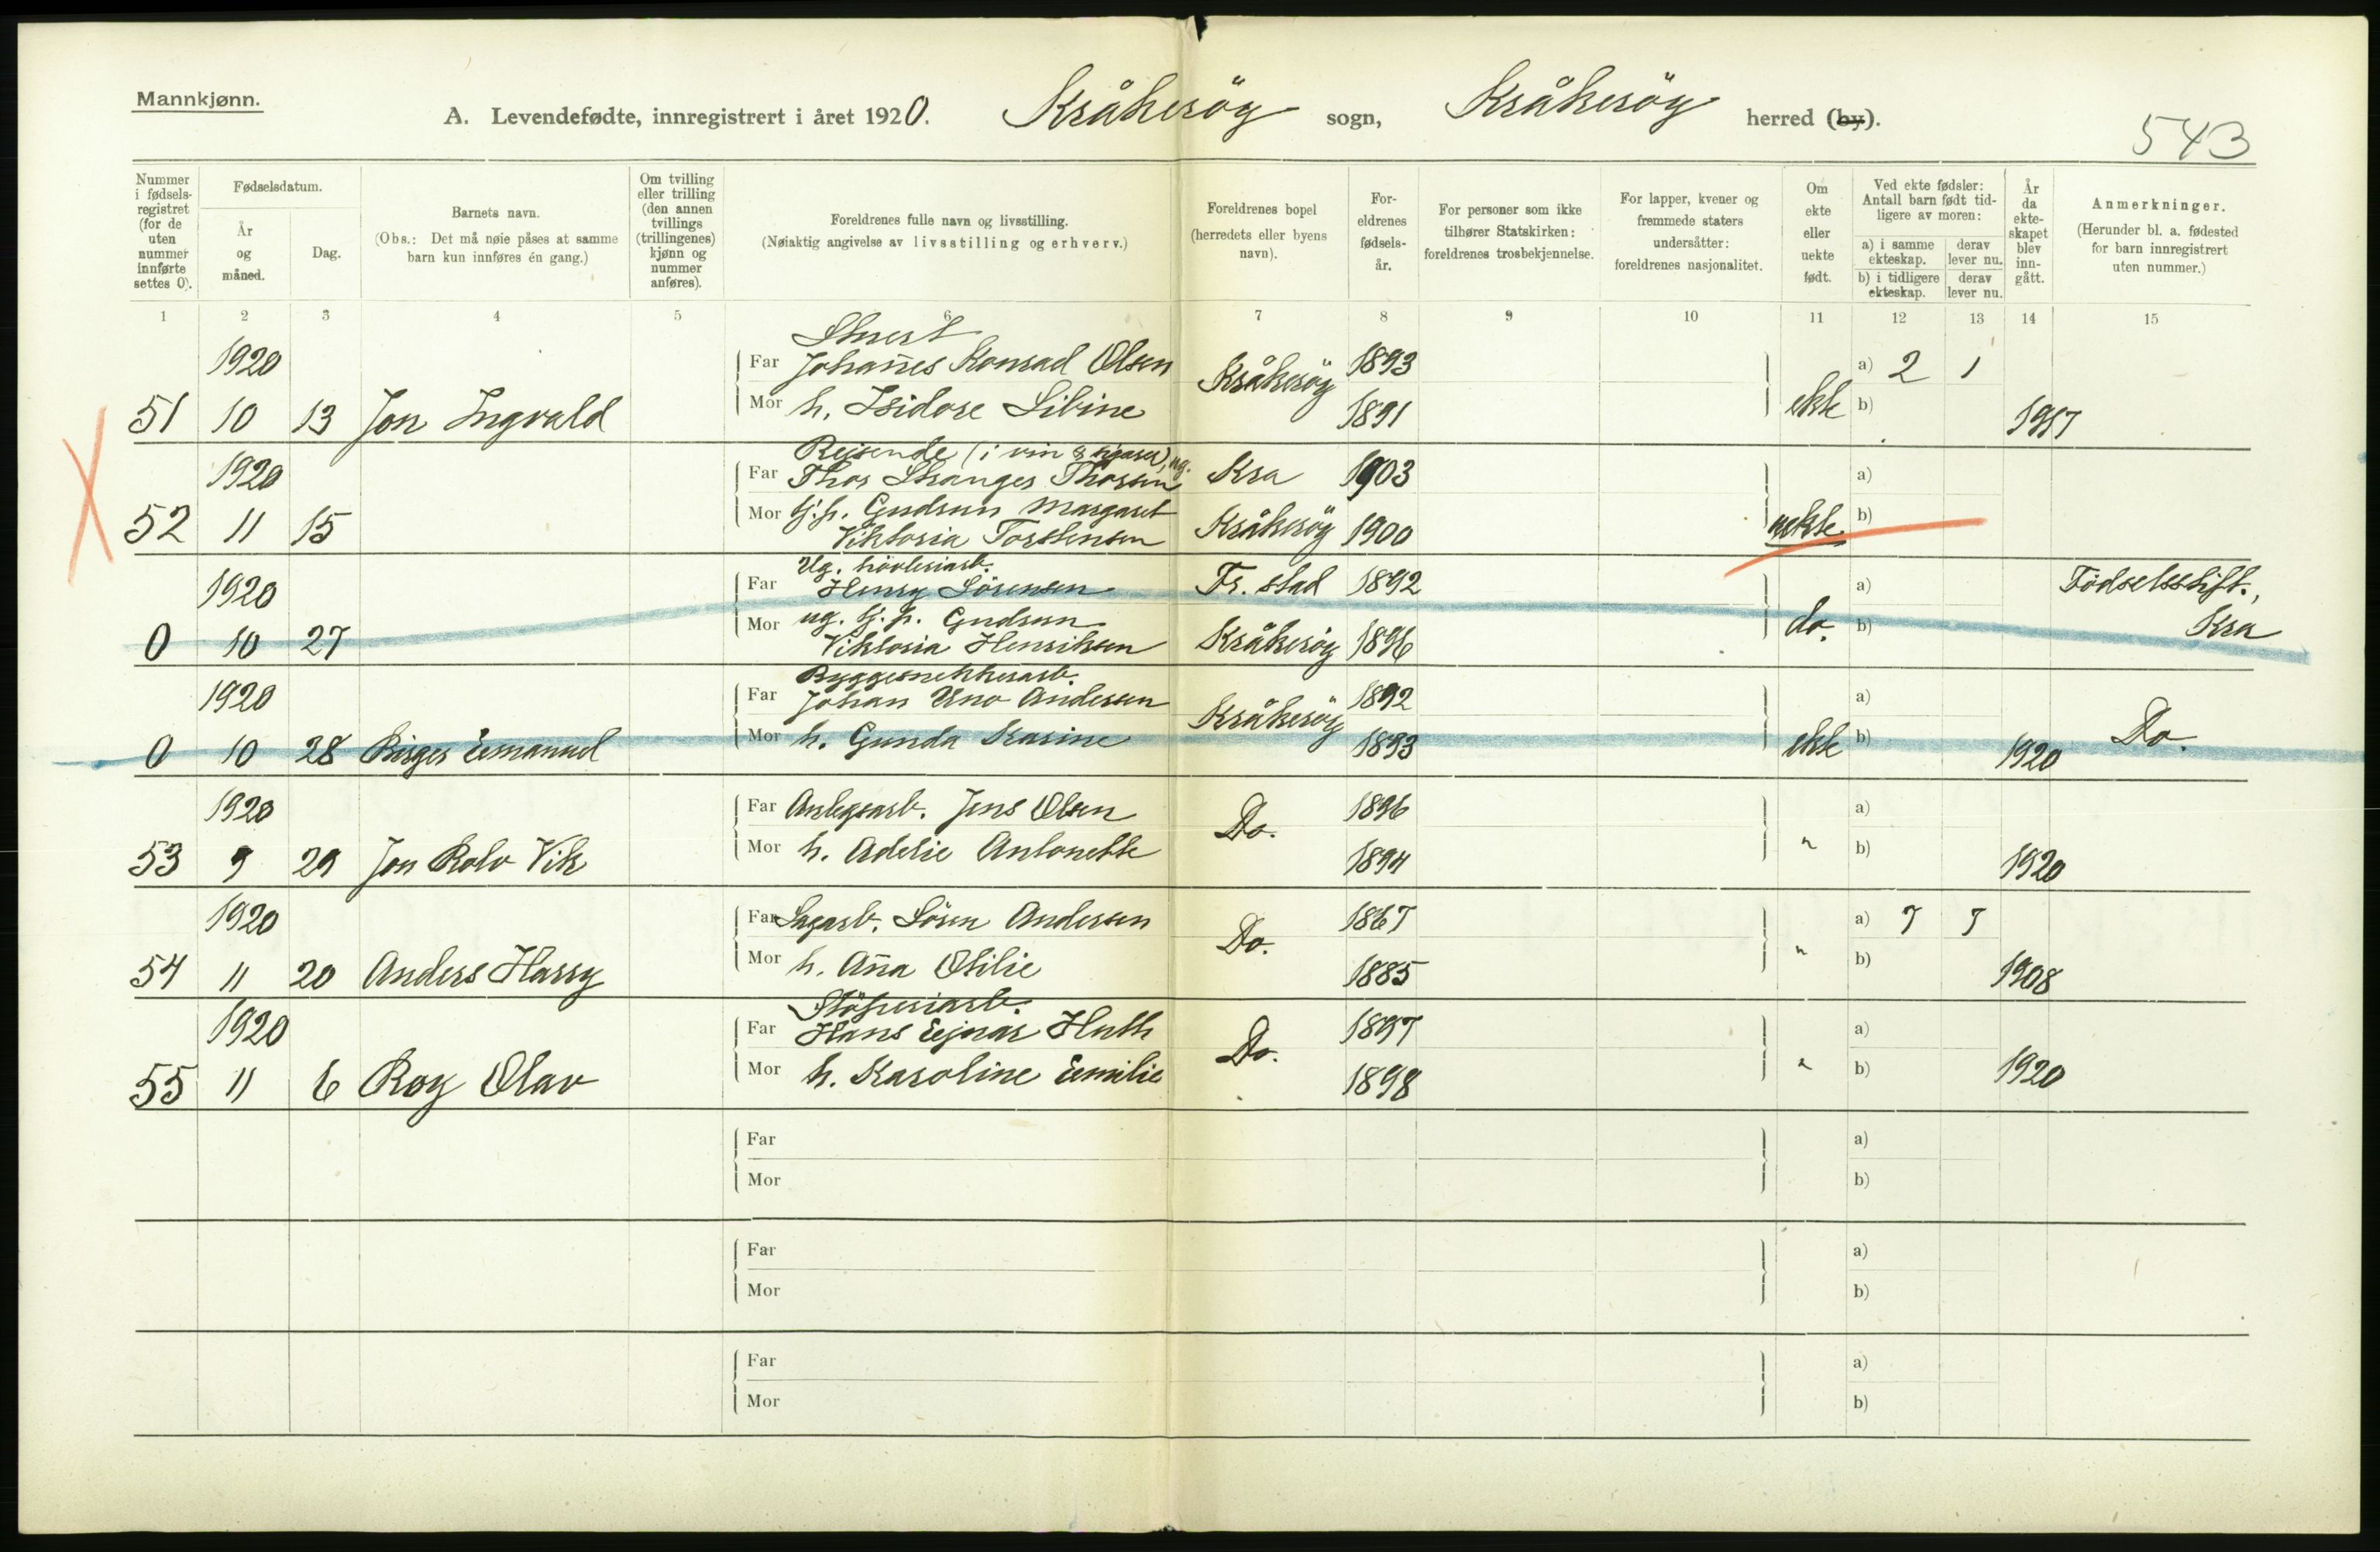 Mannkjønn.
A. Levendefødte, innregistrert i året 1920. Kråkerøy sogn, Kråkerøy herred (by).
543
Nummer i fødsels-registret (for de uten nummer innførte settes 0).
Fødselsdatum.
År og måned.
Dag.
Barnets navn.
(Obs.: Det må nøie påses at samme barn kun innføres én gang.)
Om tvilling eller trilling (den annen tvillings (trillingenes) kjønn og nummer anføres).
Foreldrenes fulle navn og livsstilling.
(Nøiaktig angivelse av livsstilling og erhverv.)
Foreldrenes bopel (herredets eller byens navn).
For-eldrenes fødsels-år.
For personer som ikke tilhører Statskirken: foreldrenes trosbekjennelse.
For lapper, kvener og fremmede staters undersåtter: foreldrenes nasjonalitet.
Om ekte eller uekte født.
Ved ekte fødsler: Antall barn født tid-ligere av moren:
a) i samme ekteskap.
derav lever nu.
b) i tidligere ekteskap.
derav lever nu.
År da ekte-skapet blev inn-gått.
Anmerkninger.
(Herunder bl. a. fødested for barn innregistrert uten nummer.)
1 2 3 4 5 6 7 8 9 10 11 12 13 14 15
Stuert
1920 Far Johannes Konrad Olsen Kråkerøy 1893 a) 2 1
51 10 13 Jon Ingvald Mor h. Isidore Sibine 1891 ekte b) 1917
Reisende (i vin & sigarer), ug.
1920 Far Thor Stranger Thorsen Kra 1903 a)
52 11 15 Mor tj.p. Gudrun Margaret Viktoria Torstensen Kråkerøy 1900 uekte b)
Ug. høvleriarb.
1920 Far Henry Sörensen Fr. stad 1892 a) Födselsstift.,
0 10 27 Mor ug. tj.p. Gudrun Viktoria Henriksen Kråkeröy 1896 do. b) Kra
Byggesnekkerarb.
1920 Far Johan Uno Andersen Kråkeröy 1892 a)
0 10 28 Birger Emanuel Mor h. Gunda Karine 1893 ekte b) 1920 Do.
1920 Far Anlegsarb. Jens Olsen Do. 1896 a)
53 9 29 Jon Rolv Vik Mor h. Adelie Antonette 1894 " b) 1920
1920 Far Sagarb. Sören Andersen Do. 1867 a) 7 7
54 11 20 Anders Harry Mor h. Anna Otilie 1885 " b) 1908
Stöperiarb.
1920 Far Hans Ejnar Huth Do. 1897 a)
55 11 6 Roy Olav Mor h. Karoline Emilie 1898 " b) 1920
Far a)
Mor b)
Far a)
Mor b)
Far a)
Mor b)